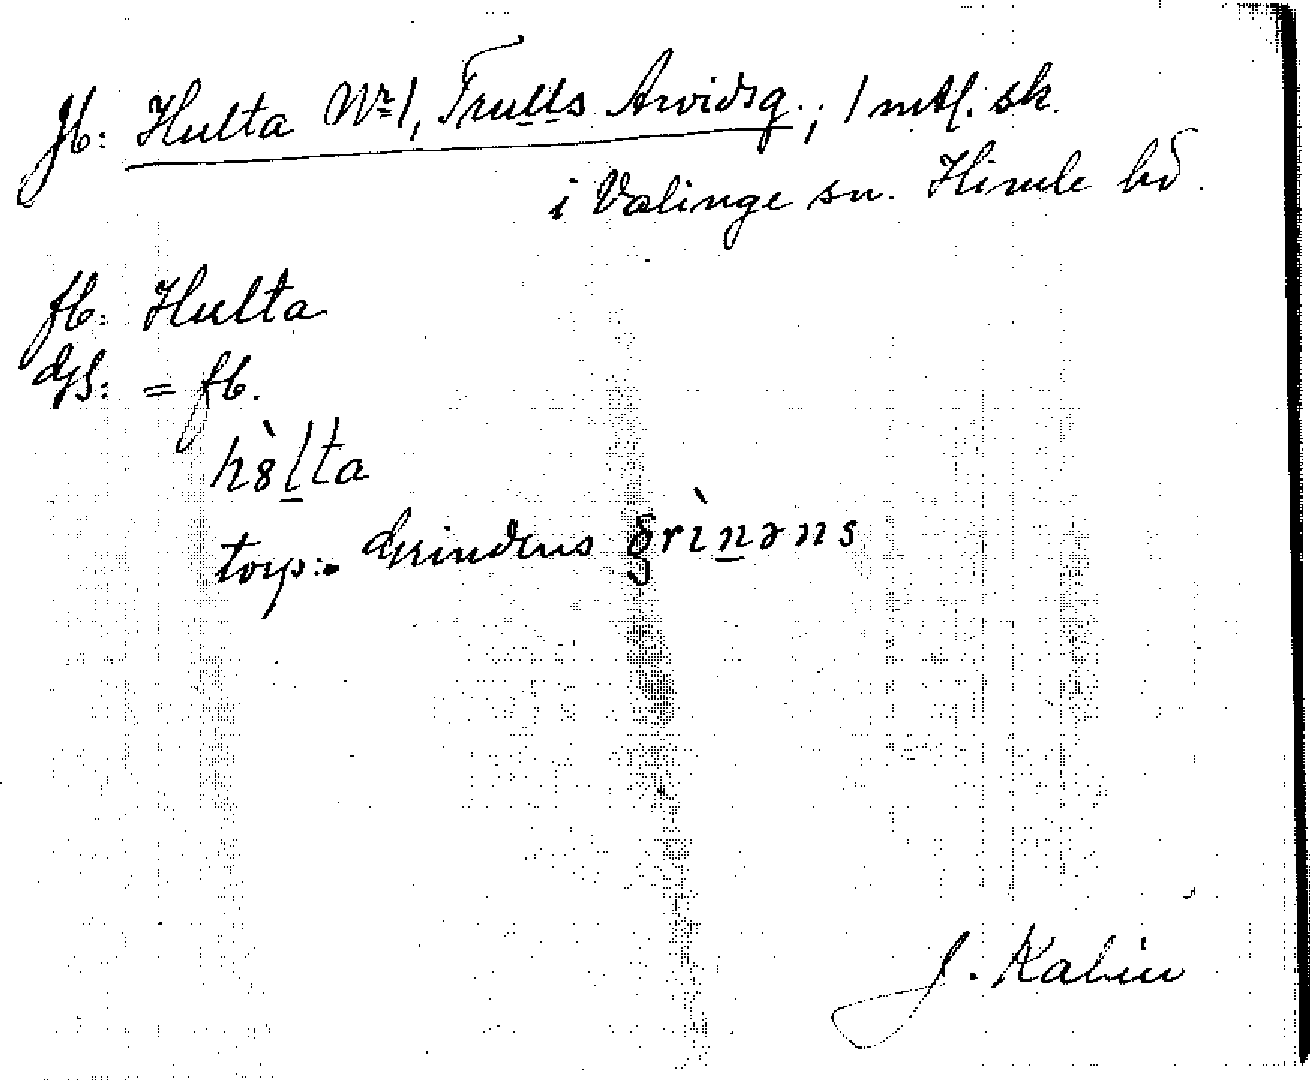 Jb: Hulta Nr 1, Trulls Arvidsg.; 1 mtl. sk.
i Valinge sn. Himle hd.
fb: Hulta
GS: = fb.
hòlta
torp: Grindens grìnəns
J. Kalén